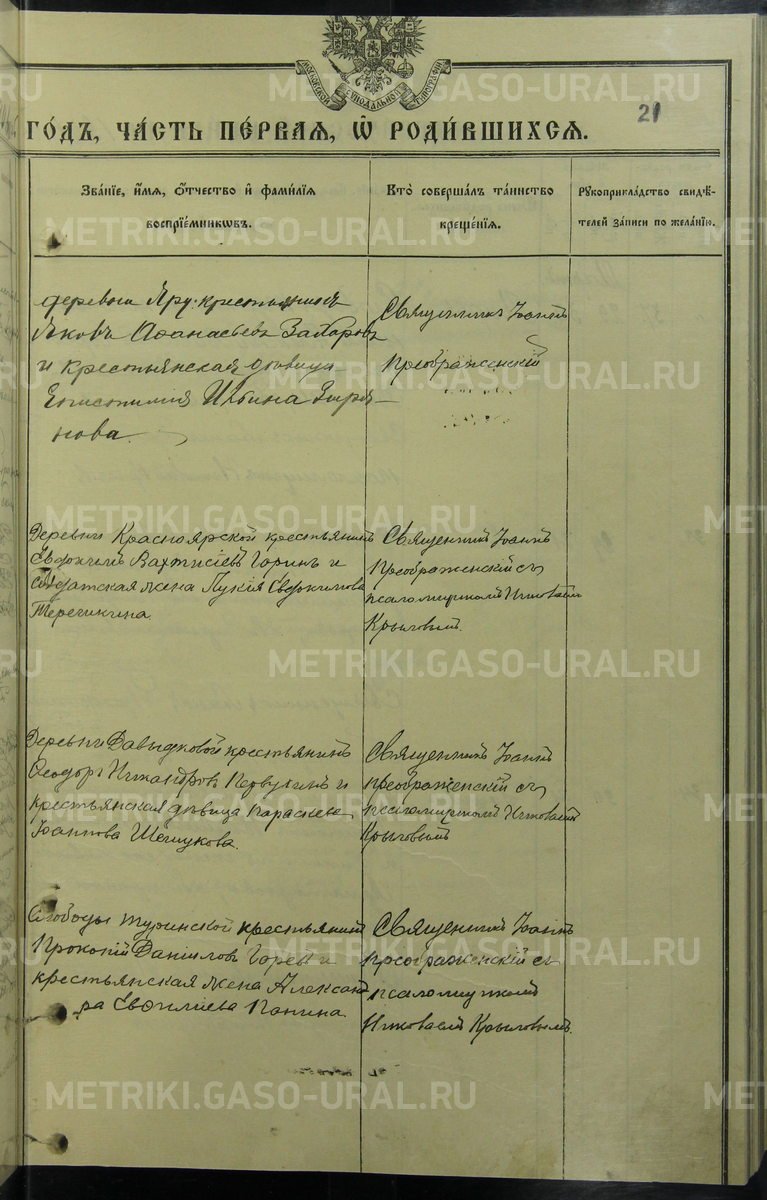 МОСКОВСКОЙ СѴНОДАЛЬНОЙ ТИПОГРАФІИ
21
ГО́ДЪ, ЧА́СТЬ ПЕ́РВАЯ, Ѡ҆ РОДИ́ВШИХСЯ.
Зва́нїе, и҆́мя, ѻ҆́тчество и҆ фами́лїя
воспрїе́мникѡвъ.
Кто̀ соверша́лъ та́инство
креще́нїя.
Рꙋкоприкла́дство свидѣ́-
телей за́писи по жела́нїю.
деревни Яру крестьянинъ
Яковъ Аѳанасьевъ Захаровъ
и крестьянская дѣвица
Ильина
нова.
Священникъ Іоаннъ
Преображенскій
Деревни Красноярской крестьянинъ
Горинъ и
солдатская жена Лукія Евфимова
Священникъ Іоаннъ
Преображенскій съ
псаломщикомъ Николаемъ
Крыловымъ.
Деревни Давыдковой крестьянинъ
Ѳеодоръ Никандровъ Первухинъ и
крестьянская дѣвица Параскева
Іоаннова Шешукова.
Священникъ Іоаннъ
Преображенскій съ
псаломщикомъ Николаемъ
Крыловымъ
Слободы Туринской крестьянинъ
Прокопій Даніиловъ и
крестьянская жена Алексан-
ра Панина.
Священникъ Іоаннъ
Преображенскій съ
псаломщикомъ
Николаемъ Крыловымъ.
METRIKI.GASO-URAL.RU